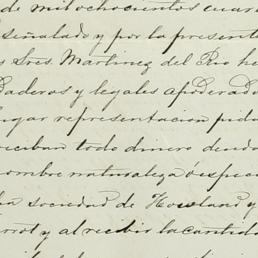 de mil ochocientos cuar
señalado y por la present
s Sres. Martinez del Rio he
daderos y legales apoderado
lugar representacion pida
reciban todo dinero deuda
nombre naturaleza ó especi
la sociedad de Howland y
y al recibir la cantida